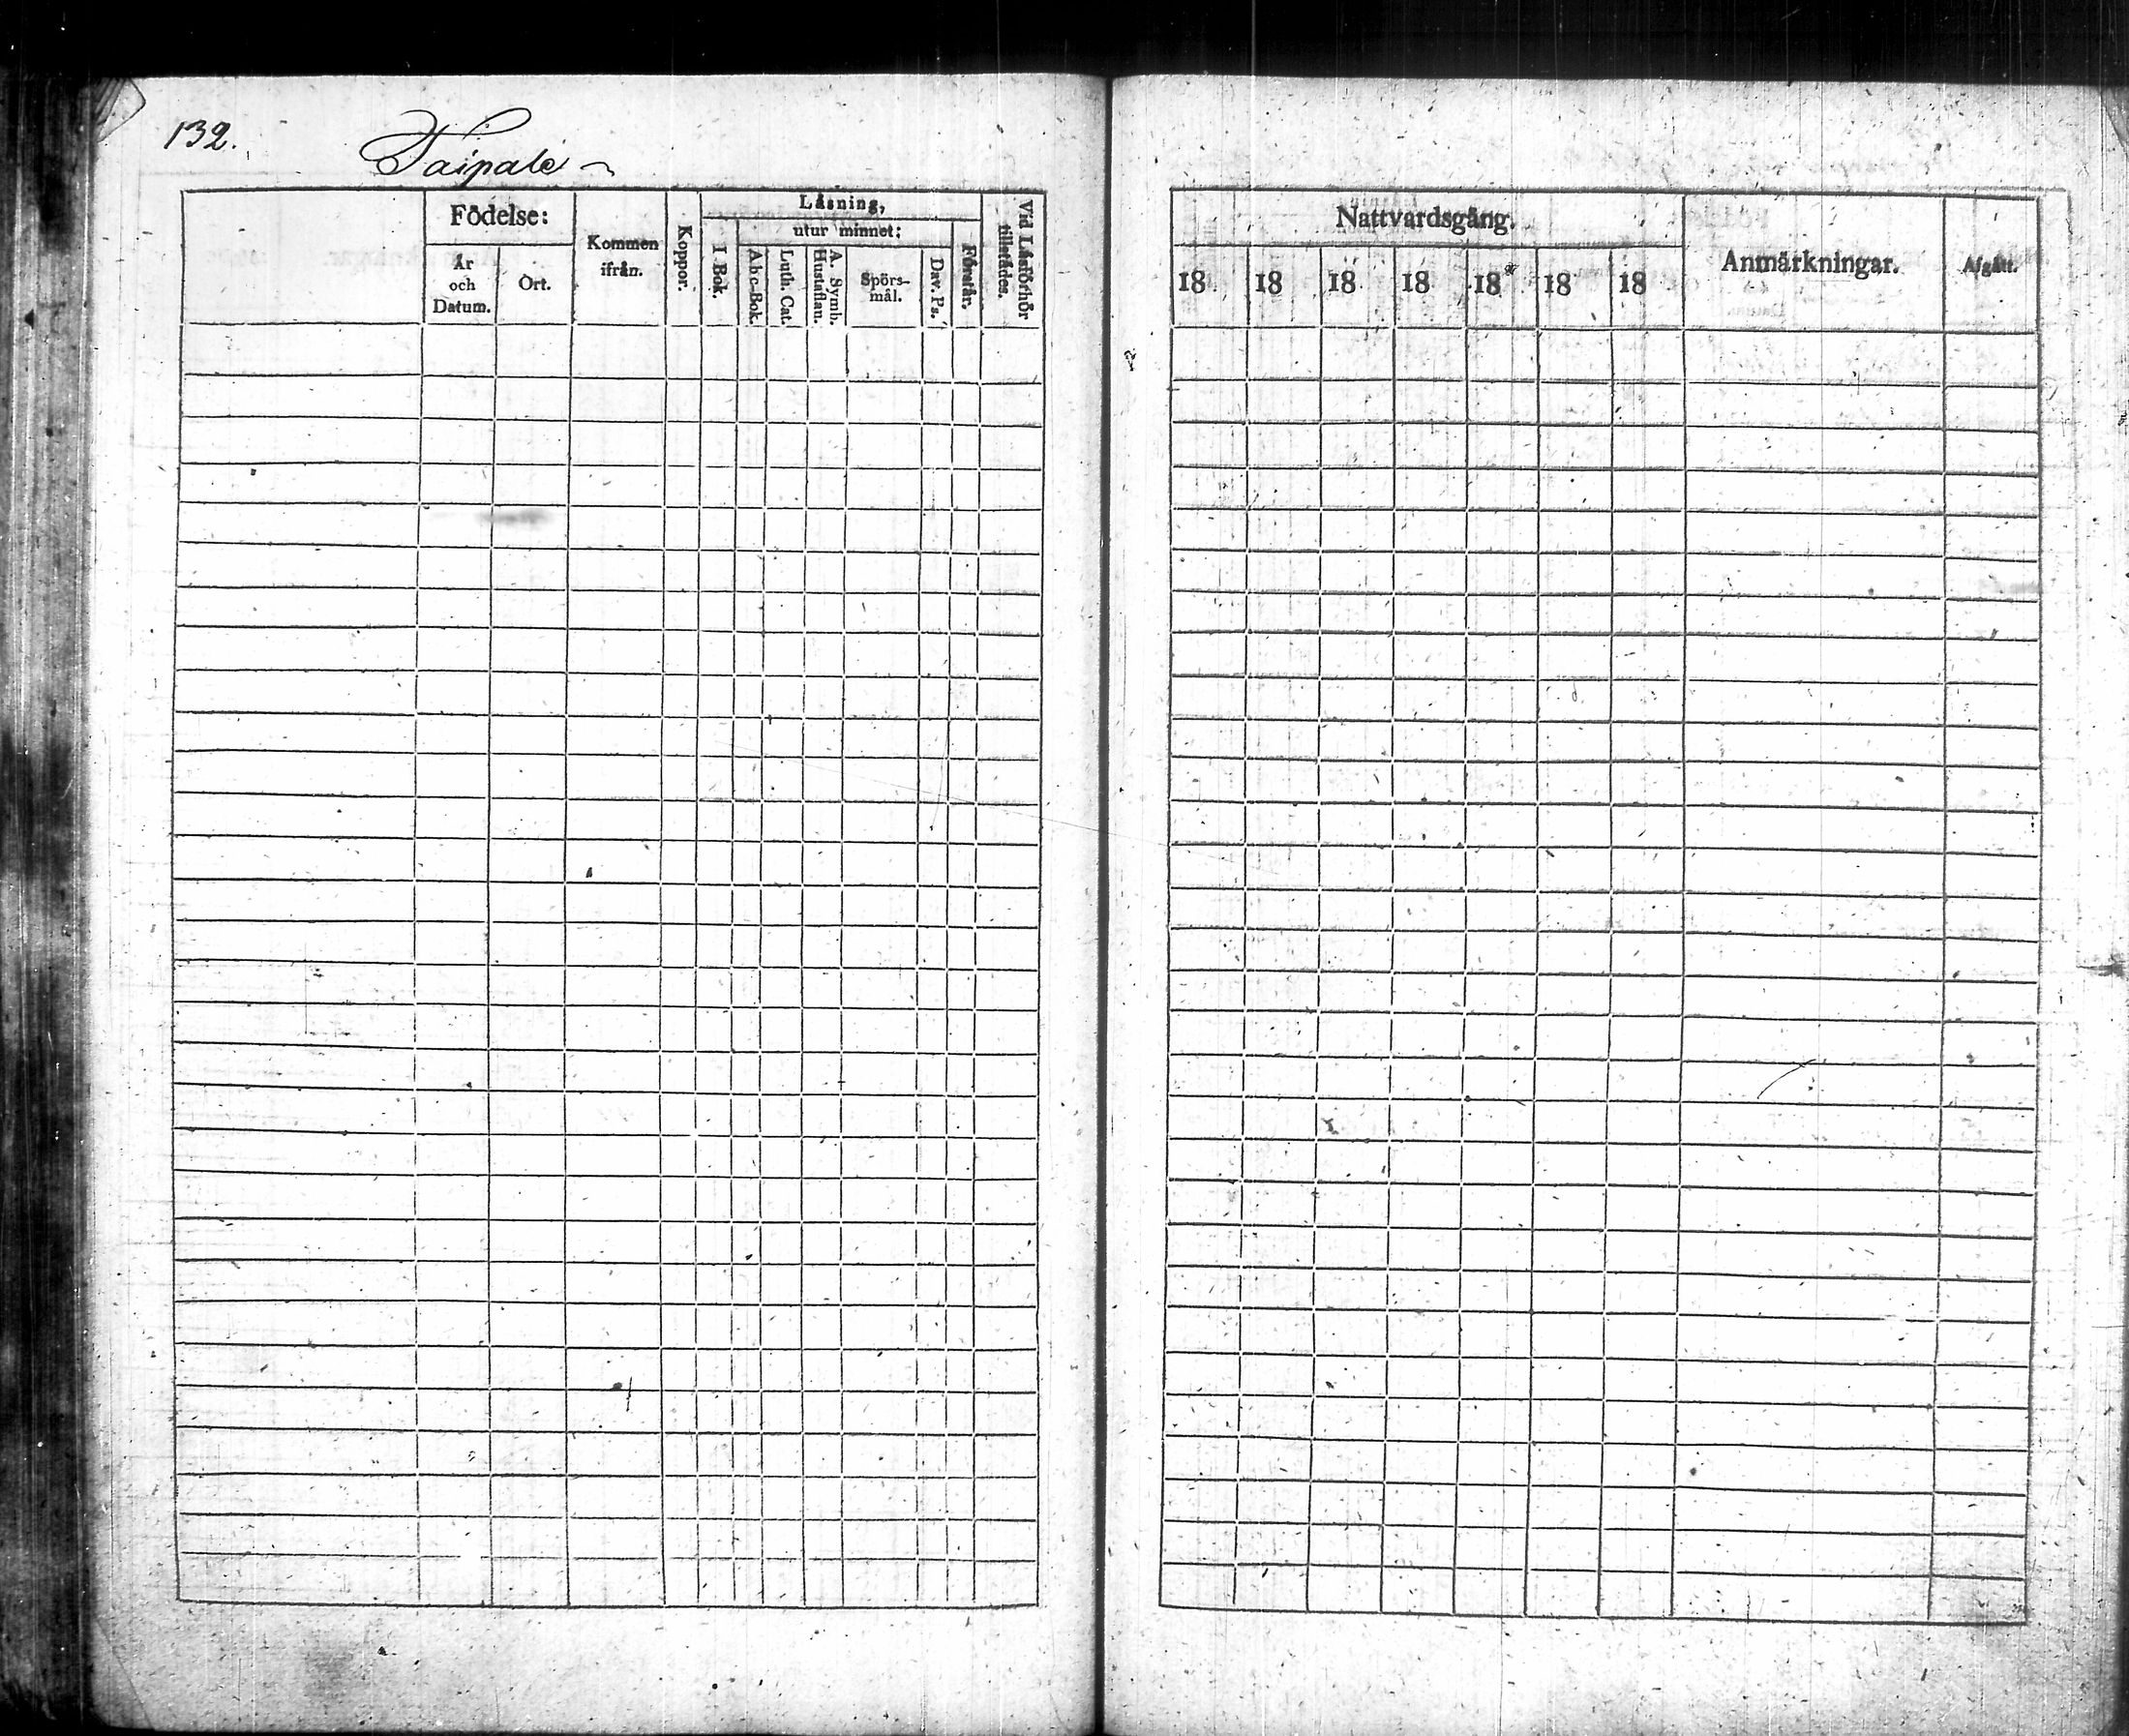 132.
Taipale
Födelse:
År och Datum.
Ort.
Kommen ifrån.
Koppor.
Läsning,
I Bok.
utur minnet:
Abc-Bok.
Luth. Cat.
A. Symb. Hustaflan.
Spörs-mål.
Dav. Ps.
Förstår.
Vid Läsförhör tillstädes.
Nattvardsgång.
18 18 18 18 18 18 18
Anmärkningar.
Afgått.